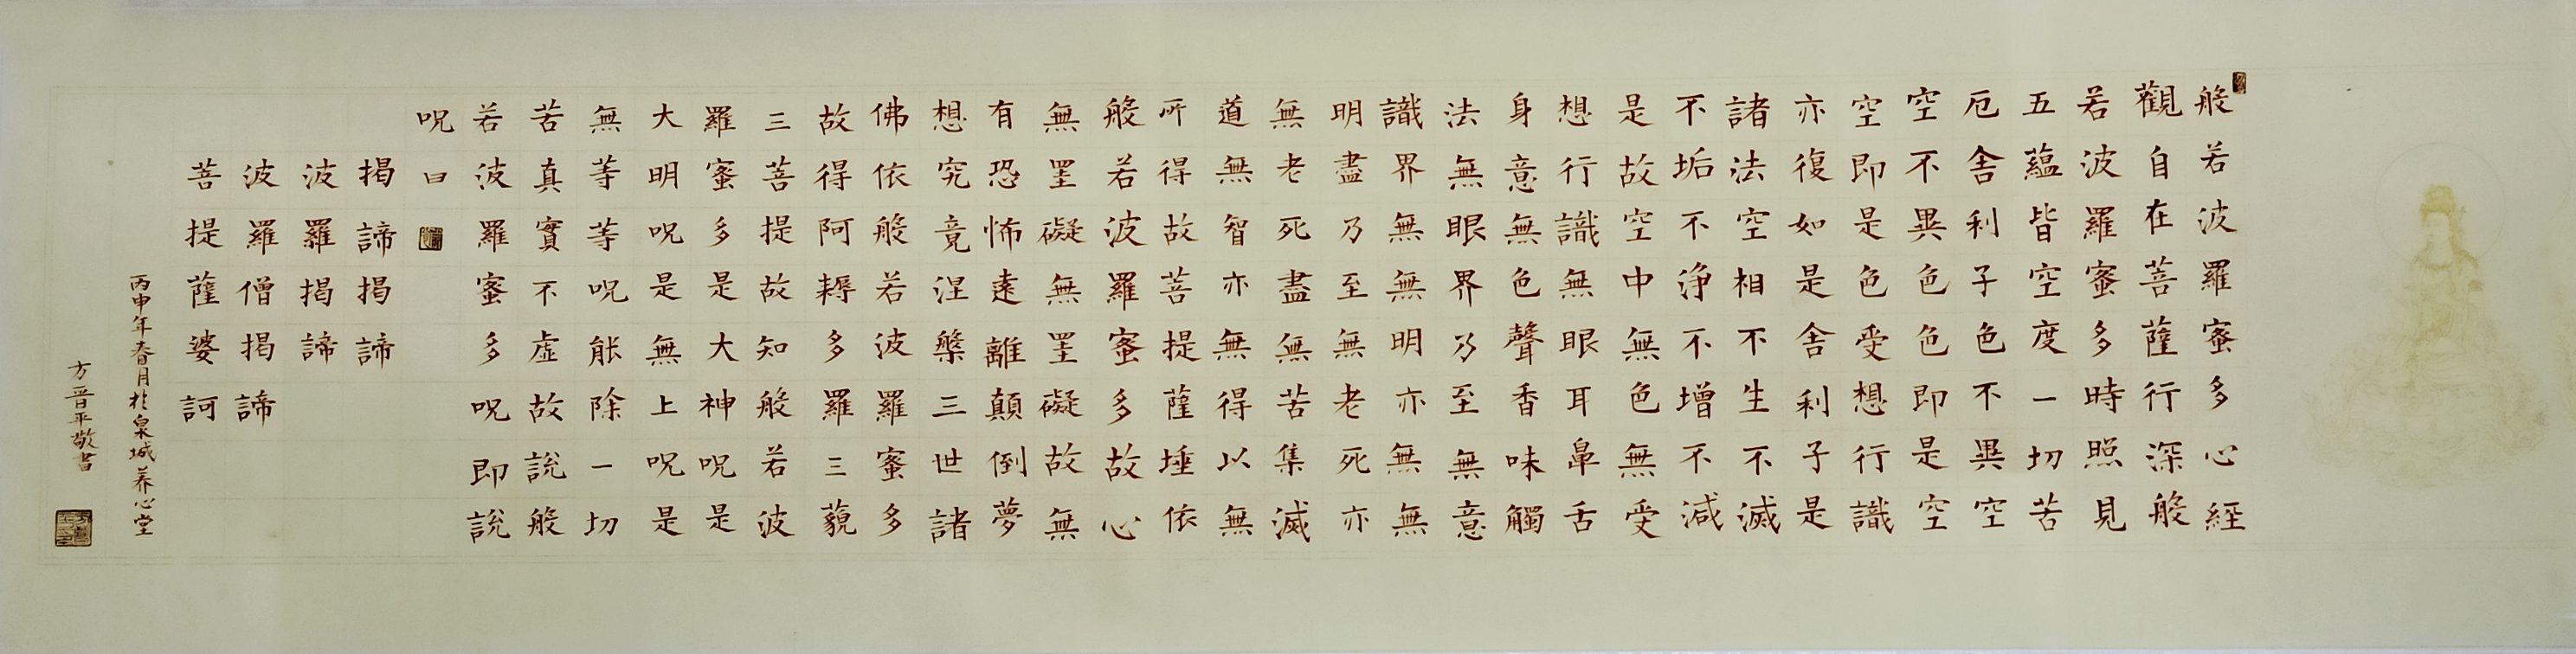 般若波羅蜜多心經
觀自在菩薩行深般
若波羅蜜多時照見
五蘊皆空度一切苦
厄舍利子色不異空
空不異色色即是空
空即是色受想行識
亦復如是舍利子是
諸法空相不生不滅
不垢不淨不增不減
是故空中無色無受
想行識無眼耳鼻舌
身意無色聲香味觸
法無眼界乃至無意
識界無無明亦無無
明盡乃至無老死亦
無老死盡無苦集滅
道無智亦無得以無
所得故菩提薩埵依
般若波羅蜜多故心
無罣礙無罣礙故無
有恐怖遠離顛倒夢
想究竟涅槃三世諸
佛依般若波羅蜜多
故得阿耨多羅三藐
三菩提故知般若波
羅蜜多是大神呪是
大明呪是無上呪是
無等等呪能除一切
苦真實不虛故說般
若波羅蜜多呪即說
呪曰
揭諦揭諦
波羅揭諦
波羅僧揭諦
菩提薩婆訶
丙申年春月於泉城养心堂
方晋平敬書